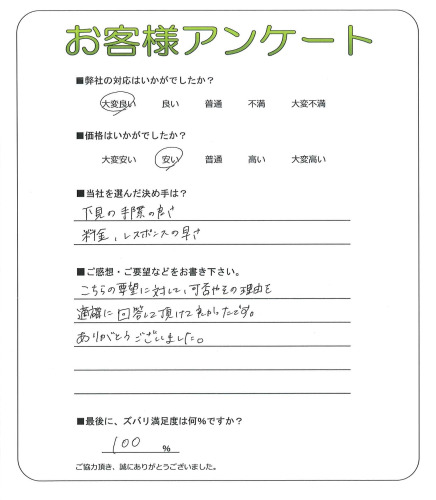 お客様アンケート
■弊社の対応はいかがでしたか?
大変良い 良い 普通 不満 大変不満
■価格はいかがでしたか?
大変安い 安い 普通 高い 大変高い
■当社を選んだ決め手は?
下見の手際の良さ
料金、レスポンスの早さ
■ご感想・ご要望などをお書き下さい。
こちらの要望に対して、可否やその理由を
適確に回答して頂けて良かったです。
ありがとうございました。
■最後に、ズバリ満足度は何%ですか?
100 %
ご協力頂き、誠にありがとうございました。